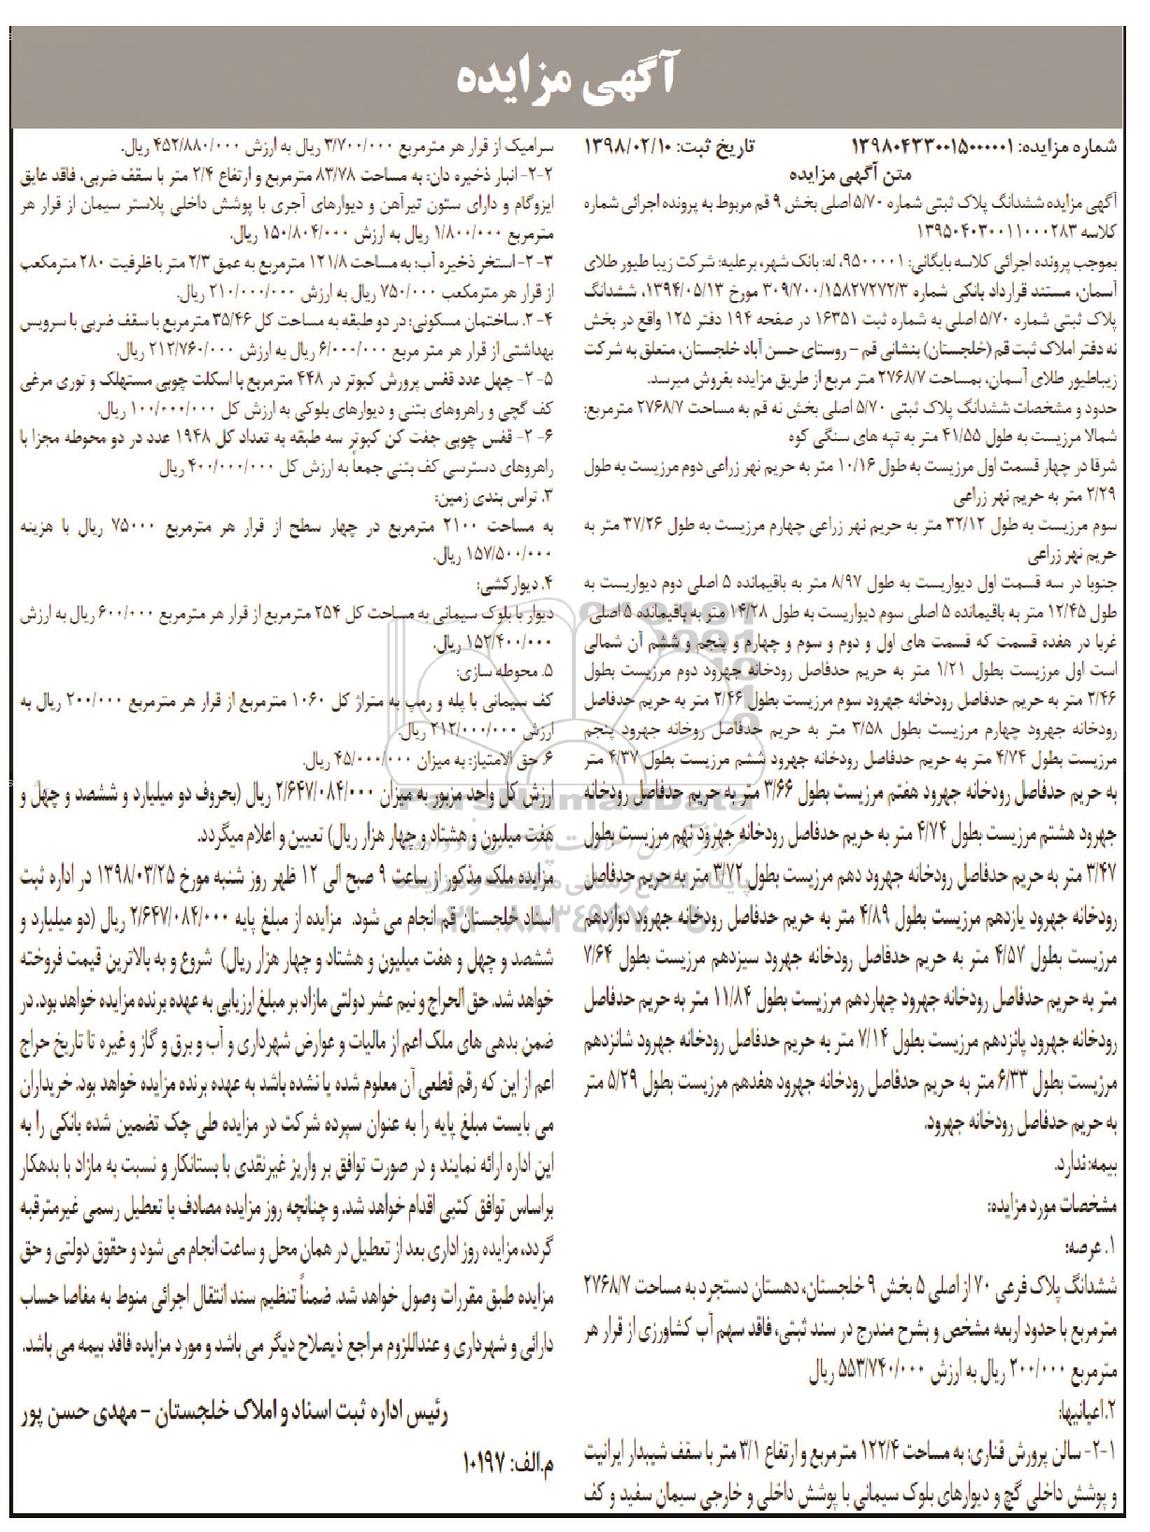 آگهی مزایده
شماره مزایده: ۱۳۹۸۰۴۳۳۰۰۱۵۰۰۰۰۰۱ تاریخ ثبت: ۱۳۹۸/۰۲/۱۰
متن آگهی مزایده
آگهی مزایده ششدانگ پلاک ثبتی شماره ۵/۷۰ اصلی بخش ۹ قم مربوط به پرونده اجرائی شماره
کلاسه ۱۳۹۵۰۴۰۳۰۰۱۱۰۰۰۲۸۳
بموجب پرونده اجرائی کلاسه بایگانی: ۹۵۰۰۰۰۱، له: بانک شهر، برعلیه: شرکت زیبا طیور طلای
آسمان، مستند قرارداد بانکی شماره ۳۰۹/۷۰۰/۱۵۸۲۷۲۷۲/۳ مورخ ۱۳۹۴/۰۵/۱۳، ششدانگ
پلاک ثبتی شماره ۵/۷۰ اصلی به شماره ثبت ۱۶۳۵۱ در صفحه ۱۹۴ دفتر ۱۲۵ واقع در بخش
نه دفتر املاک ثبت قم (خلجستان) بنشانی قم – روستای حسن آباد خلجستان، متعلق به شرکت
زیباطیور طلای آسمان، بمساحت ۲۷۶۸/۷ متر مربع از طریق مزایده بفروش میرسد.
حدود و مشخصات ششدانگ پلاک ثبتی ۵/۷۰ اصلی بخش نه قم به مساحت ۲۷۶۸/۷ مترمربع:
شمالا مرزیست به طول ۴۱/۵۵ متر به تپه های سنگی کوه
شرقا در چهار قسمت اول مرزیست به طول ۱۰/۱۶ متر به حریم نهر زراعی دوم مرزیست به طول
۲/۲۹ متر به حریم نهر زراعی
سوم مرزیست به طول ۳۲/۱۲ متر به حریم نهر زراعی چهارم مرزیست به طول ۳۷/۲۶ متر به
حریم نهر زراعی
جنوبا در سه قسمت اول دیواریست به طول ۸/۹۷ متر به باقیمانده ۵ اصلی دوم دیواریست به
طول ۱۲/۴۵ متر به باقیمانده ۵ اصلی سوم دیواریست به طول ۱۴/۲۸ متر به باقیمانده ۵ اصلی
غربا در هفده قسمت که قسمت های اول و دوم و سوم و چهارم و پنجم و ششم آن شمالی
است اول مرزیست بطول ۱/۲۱ متر به حریم حدفاصل رودخانه جهرود دوم مرزیست بطول
۲/۴۶ متر به حریم حدفاصل رودخانه جهرود سوم مرزیست بطول ۲/۴۶ متر به حریم حدفاصل
رودخانه جهرود چهارم مرزیست بطول ۳/۵۸ متر به حریم حدفاصل روخانه جهرود پنجم
مرزیست بطول ۴/۷۴ متر به حریم حدفاصل رودخانه جهرود ششم مرزیست بطول ۴/۳۷ متر
به حریم حدفاصل رودخانه جهرود هفتم مرزیست بطول ۳/۶۶ متر به حریم حدفاصل رودخانه
جهرود هشتم مرزیست بطول ۴/۷۴ متر به حریم حدفاصل رودخانه جهرود نهم مرزیست بطول
۳/۴۷ متر به حریم حدفاصل رودخانه جهرود دهم مرزیست بطول ۳/۷۲ متر به حریم حدفاصل
رودخانه جهرود یازدهم مرزیست بطول ۴/۸۹ متر به حریم حدفاصل رودخانه جهرود دوازدهم
مرزیست بطول ۴/۵۷ متر به حریم حدفاصل رودخانه جهرود سیزدهم مرزیست بطول ۷/۶۴
متر به حریم حدفاصل رودخانه جهرود چهاردهم مرزیست بطول ۱۱/۸۴ متر به حریم حدفاصل
رودخانه جهرود پانزدهم مرزیست بطول ۷/۱۴ متر به حریم حدفاصل رودخانه جهرود شانزدهم
مرزیست بطول ۶/۳۳ متر به حریم حدفاصل رودخانه جهرود هفدهم مرزیست بطول ۵/۲۹ متر
به حریم حدفاصل رودخانه جهرود.
بیمه: ندارد.
مشخصات مورد مزایده:
۱. عرصه:
ششدانگ پلاک فرعی ۷۰ از اصلی ۵ بخش ۹ خلجستان، دهستان دستجرد به مساحت ۲۷۶۸/۷
مترمربع با حدود اربعه مشخص و بشرح مندرج در سند ثبتی، فاقد سهم آب کشاورزی از قرار هر
مترمربع ۲۰۰/۰۰۰ ریال به ارزش ۵۵۳/۷۴۰/۰۰۰ ریال
۲. اعیانیها:
۲-۱- سالن پرورش قناری: به مساحت ۱۲۲/۴ مترمربع و ارتفاع ۳/۱ متر با سقف شیبدار ایرانیت
و پوشش داخلی گچ و دیوارهای بلوک سیمانی با پوشش داخلی و خارجی سیمان سفید و کف
سرامیک از قرار هر مترمربع ۳/۷۰۰/۰۰۰ ریال به ارزش ۴۵۲/۸۸۰/۰۰۰ ریال.
۲-۲- انبار ذخیره دان: به مساحت ۸۳/۷۸ مترمربع و ارتفاع ۲/۴ متر با سقف ضربی، فاقد عایق
ایزوگام و دارای ستون تیرآهن و دیوارهای آجری با پوشش داخلی پلاستر سیمان از قرار هر
مترمربع ۱/۸۰۰/۰۰۰ ریال به ارزش ۱۵۰/۸۰۴/۰۰۰ ریال.
۲-۳- استخر ذخیره آب: به مساحت ۱۲۱/۸ مترمربع به عمق ۲/۳ متر با ظرفیت ۲۸۰ مترمکعب
از قرار هر مترمکعب ۷۵۰/۰۰۰ ریال به ارزش ۲۱۰/۰۰۰/۰۰۰ ریال.
۲-۴. ساختمان مسکونی: در دو طبقه به مساحت کل ۳۵/۴۶ مترمربع با سقف ضربی با سرویس
بهداشتی از قرار هر متر مربع ۶/۰۰۰/۰۰۰ ریال به ارزش ۲۱۲/۷۶۰/۰۰۰ ریال.
۲-۵- چهل عدد قفس پرورش کبوتر در ۴۴۸ مترمربع با اسکلت چوبی مستهلک و توری مرغی
کف گچی و راهروهای بتنی و دیوارهای بلوکی به ارزش کل ۱۰۰/۰۰۰/۰۰۰ ریال.
۲-۶- قفس چوبی جفت کن کبوتر سه طبقه به تعداد کل ۱۹۴۸ عدد در دو محوطه مجزا با
راهروهای دسترسی کف بتنی جمعاً به ارزش کل ۴۰۰/۰۰۰/۰۰۰ ریال
۳. تراس بندی زمین:
به مساحت ۲۱۰۰ مترمربع در چهار سطح از قرار هر مترمربع ۷۵۰۰۰ ریال با هزینه
۱۵۷/۵۰۰/۰۰۰ ریال.
۴. دیوارکشی:
دیوار با بلوک سیمانی به مساحت کل ۲۵۴ مترمربع از قرار هر مترمربع ۶۰۰/۰۰۰ ریال به ارزش
۱۵۲/۴۰۰/۰۰۰ ریال.
۵. محوطه سازی:
کف سیمانی با پله و رمپ به متراژ کل ۱۰۶۰ مترمربع از قرار هر مترمربع ۲۰۰/۰۰۰ ریال به
ارزش ۲۱۲/۰۰۰/۰۰۰ ریال.
۶. حق الامتیاز: به میزان ۴۵/۰۰۰/۰۰۰ ریال.
ارزش کل واحد مزبور به میزان ۲/۶۴۷/۰۸۴/۰۰۰ ریال (بحروف دو میلیارد و ششصد و چهل و
هفت میلیون و هشتاد و چهار هزار ریال) تعیین و اعلام میگردد.
مزایده ملک مذکور از ساعت ۹ صبح الی ۱۲ ظهر روز شنبه مورخ ۱۳۹۸/۰۳/۲۵ در اداره ثبت
اسناد خلجستان قم انجام می شود. مزایده از مبلغ پایه ۲/۶۴۷/۰۸۴/۰۰۰ ریال (دو میلیارد و
ششصد و چهل و هفت میلیون و هشتاد و چهار هزار ریال) شروع و به بالاترین قیمت فروخته
خواهد شد. حق الحراج و نیم عشر دولتی مازاد بر مبلغ ارزیابی به عهده برنده مزایده خواهد بود. در
ضمن بدهی های ملک اعم از مالیات و عوارض شهرداری و آب و برق و گاز و غیره تا تاریخ حراج
اعم از این که رقم قطعی آن معلوم شده یا نشده باشد به عهده برنده مزایده خواهد بود. خریداران
می بایست مبلغ پایه را به عنوان سپرده شرکت در مزایده طی چک تضمین شده بانکی را به
این اداره ارائه نمایند و در صورت توافق بر واریز غیرنقدی با بستانکار و نسبت به مازاد با بدهکار
براساس توافق کتبی اقدام خواهد شد. و چنانچه روز مزایده مصادف با تعطیل رسمی غیرمترقبه
گردد، مزایده روز اداری بعد از تعطیل در همان محل و ساعت انجام می شود و حقوق دولتی و حق
مزایده طبق مقررات وصول خواهد شد. ضمناً تنظیم سند انتقال اجرائی منوط به مفاصا حساب
دارائی و شهرداری و عنداللزوم مراجع ذیصلاح دیگر می باشد و مورد مزایده فاقد بیمه می باشد.
رئیس اداره ثبت اسناد و املاک خلجستان – مهدی حسن پور
م.الف: ۱۰۱۹۷